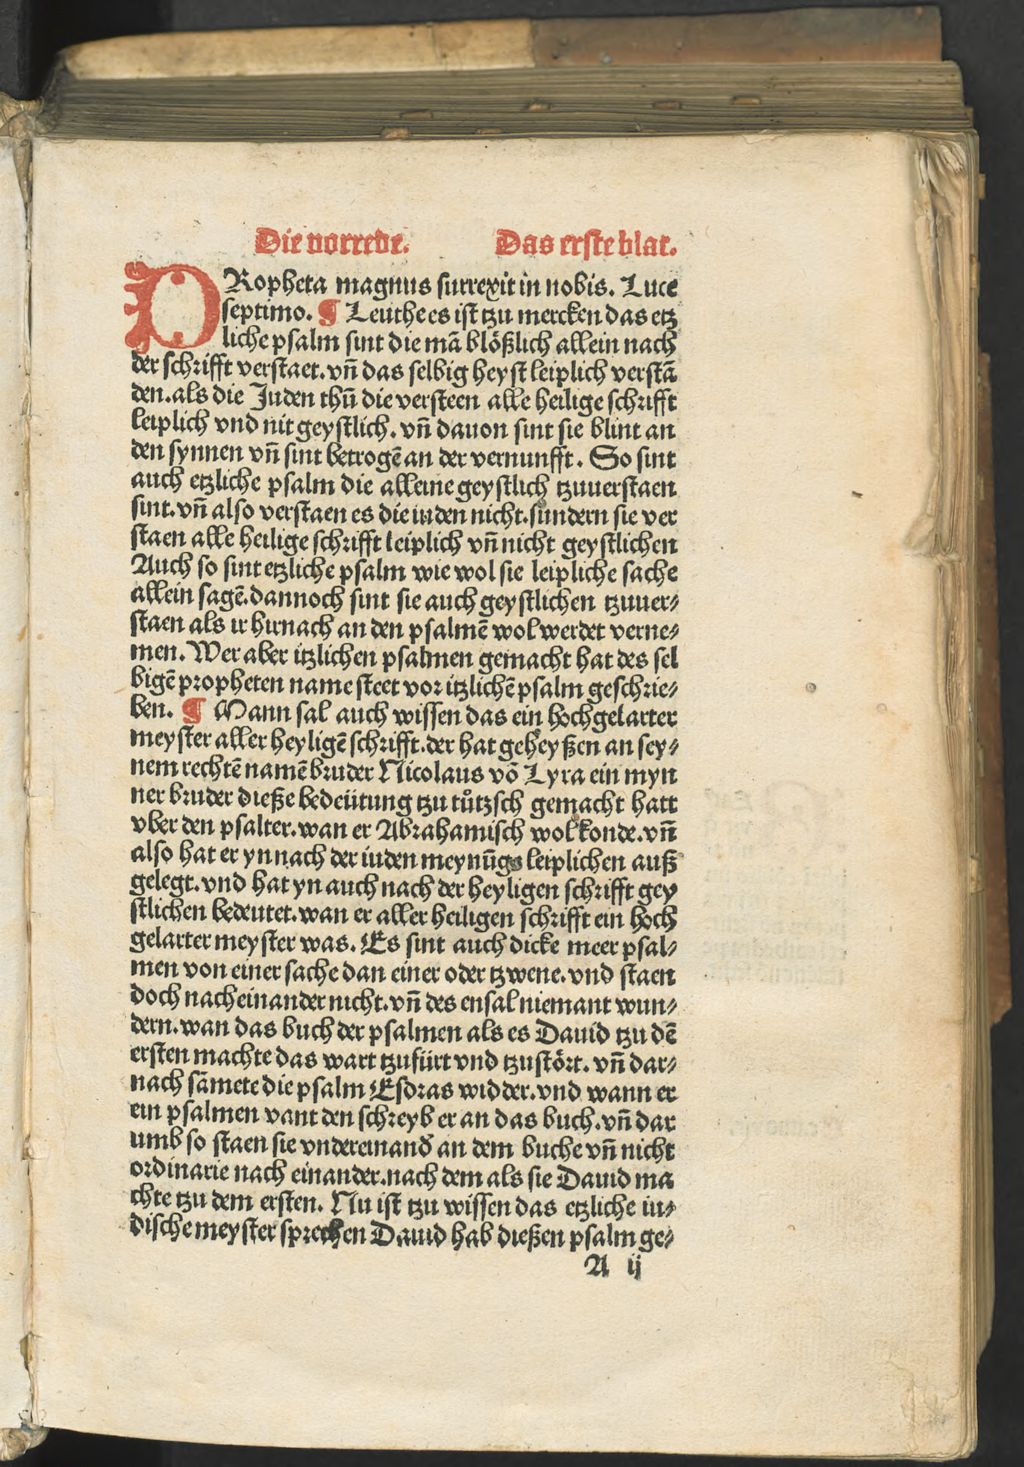 Die vorrede. Das erste blat.
PRopheta magnus surrexit in nobis. Luce
septimo. ¶ Leuthe es ist tzu mercken das etz
liche psalm sint die mā blößlich allein nach
der schrifft verstaet. vn̄ das selbig heyst leiplich verstā
den. als die Juden thū die versteen alle heilige schrifft
leiplich vnd nit geystlich. vn̄ dauon sint sie blint an
den synnen vn̄ sint betrogē an der vernunfft. So sint
auch etzliche psalm die alleine geystlich tzuuerstaen
sint. vn̄ also verstaen es die iuden nicht. sundern sie ver
staen alle heilige schrifft leiplich vn̄ nicht geystlichen
Auch so sint etzliche psalm wie wol sie leipliche sache
allein sagē. dannoch sint sie auch geystlichen tzuuer⸗
staen als ir hirnach an den psalmē wol werdet verne⸗
men. Wer aber itzlichen psalmen gemacht hat des sel
bigē propheten name steet vor itzlichē psalm geschrie⸗
ben. ¶ Mann sal auch wissen das ein hochgelarter
meyster aller heyligē schrifft. der hat geheyßen an sey⸗
nem rechtē namē bruder Nicolaus vō Lyra ein myn
ner bruder dieße bedeütung tzu tůtzsch gemacht hatt
vber den psalter. wan er Abrahamisch wol konde. vn̄
also hat er yn nach der iuden meynūgs leiplichen auß
gelegt. vnd hat yn auch nach der heyligen schrifft gey
stlichen bedeutet. wan er aller heiligen schrifft ein hoch
gelarter meyster was. Es sint auch dicke meer psal⸗
men von einer sache dan einer oder tzwene. vnd staen
doch nacheinander nicht. vn̄ des ensal niemant wun⸗
dern. wan das buch der psalmen als es Dauid tzu dē
ersten machte das wart tzufürt vnd tzustört. vn̄ dar⸗
nach sāmete die psalm Esdras widder. vnd wann er
ein psalmen vant den schreyb er an das buch. vn̄ dar
umb so staen sie vndereinand̄ an dem buche vn̄ nicht
ordinarie nach einander. nach dem als sie Dauid ma
chte tzu dem ersten. Nu ist tzu wissen das etzliche iu⸗
dische meyster sprechen Dauid hab dießen psalm ge⸗
A ij